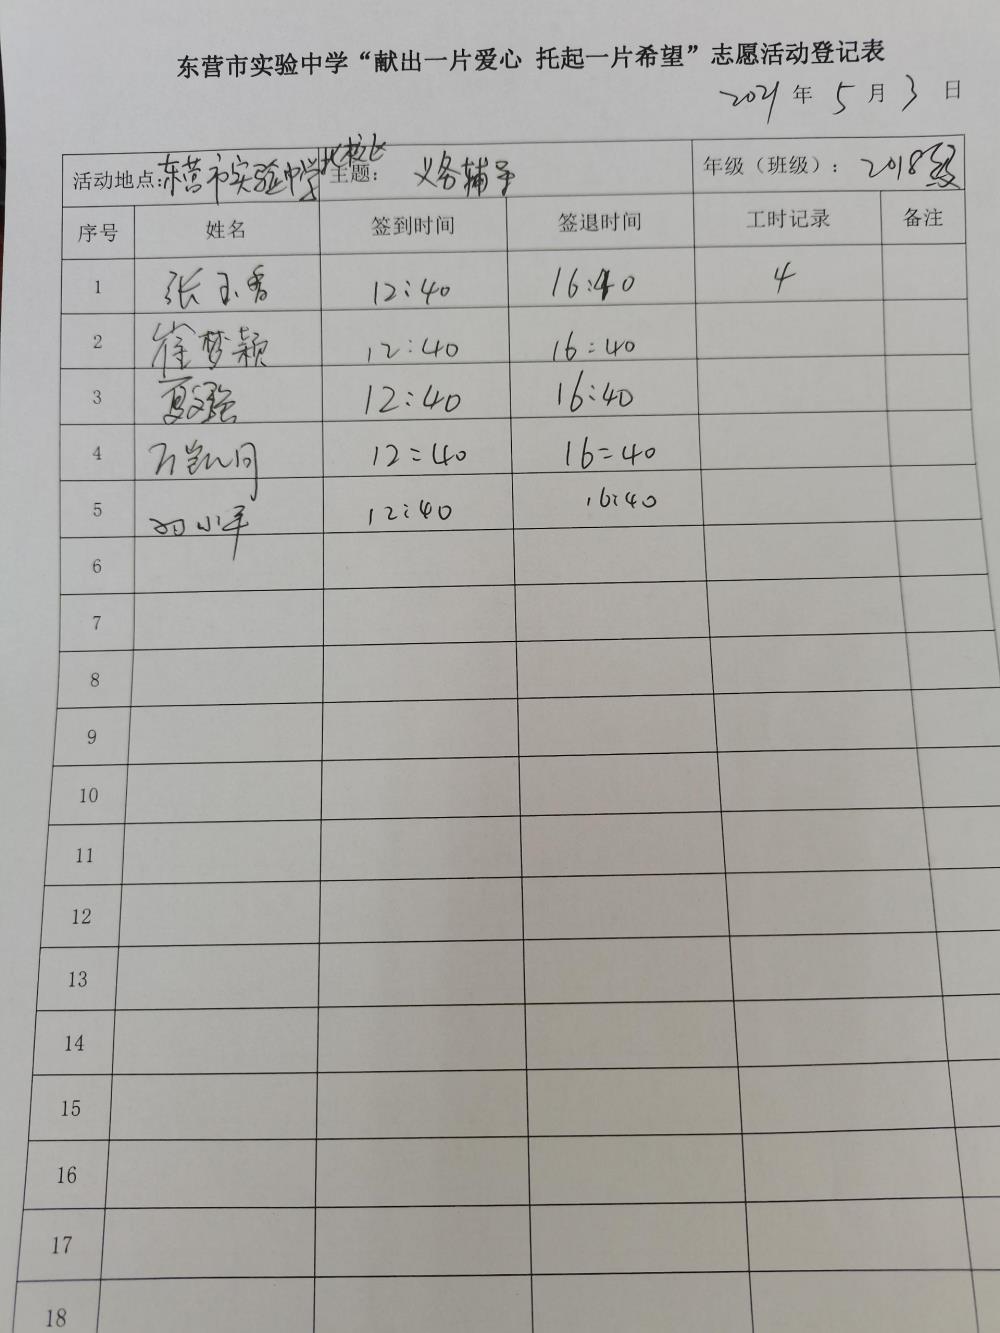 东营市实验中学“献出一片爱心 托起一片希望”志愿活动登记表
2021 年 5 月 3 日
活动地点：东营市实验中学北校区 主题： 义务辅导 年级（班级）： 2018级
序号 姓名 签到时间 签退时间 工时记录 备注
1 张玉香 12:40 16:40 4
2 崔梦颖 12:40 16:40
3 夏文强 12:40 16:40
4 12:40 16:40
5 小军 12:40 16:40
6
7
8
9
10
11
12
13
14
15
16
17
18